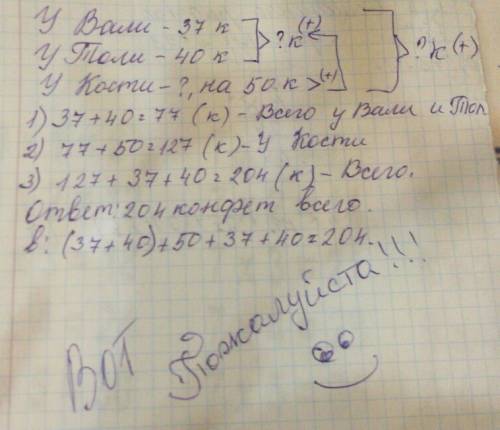 У Вали - 37 к
У Толи - 40 к ?к (+) ?к (+)
У Кости - ?, на 50 к > (+)
1) 37+40=77 (к) - Всего у Вали и Тол
2) 77+50=127 (к) - У Кости
3) 127+37+40=204 (к) - Всего.
Ответ: 204 конфет всего.
в: (37+40)+50+37+40=204.
ВОТ Пожалуйста!!!